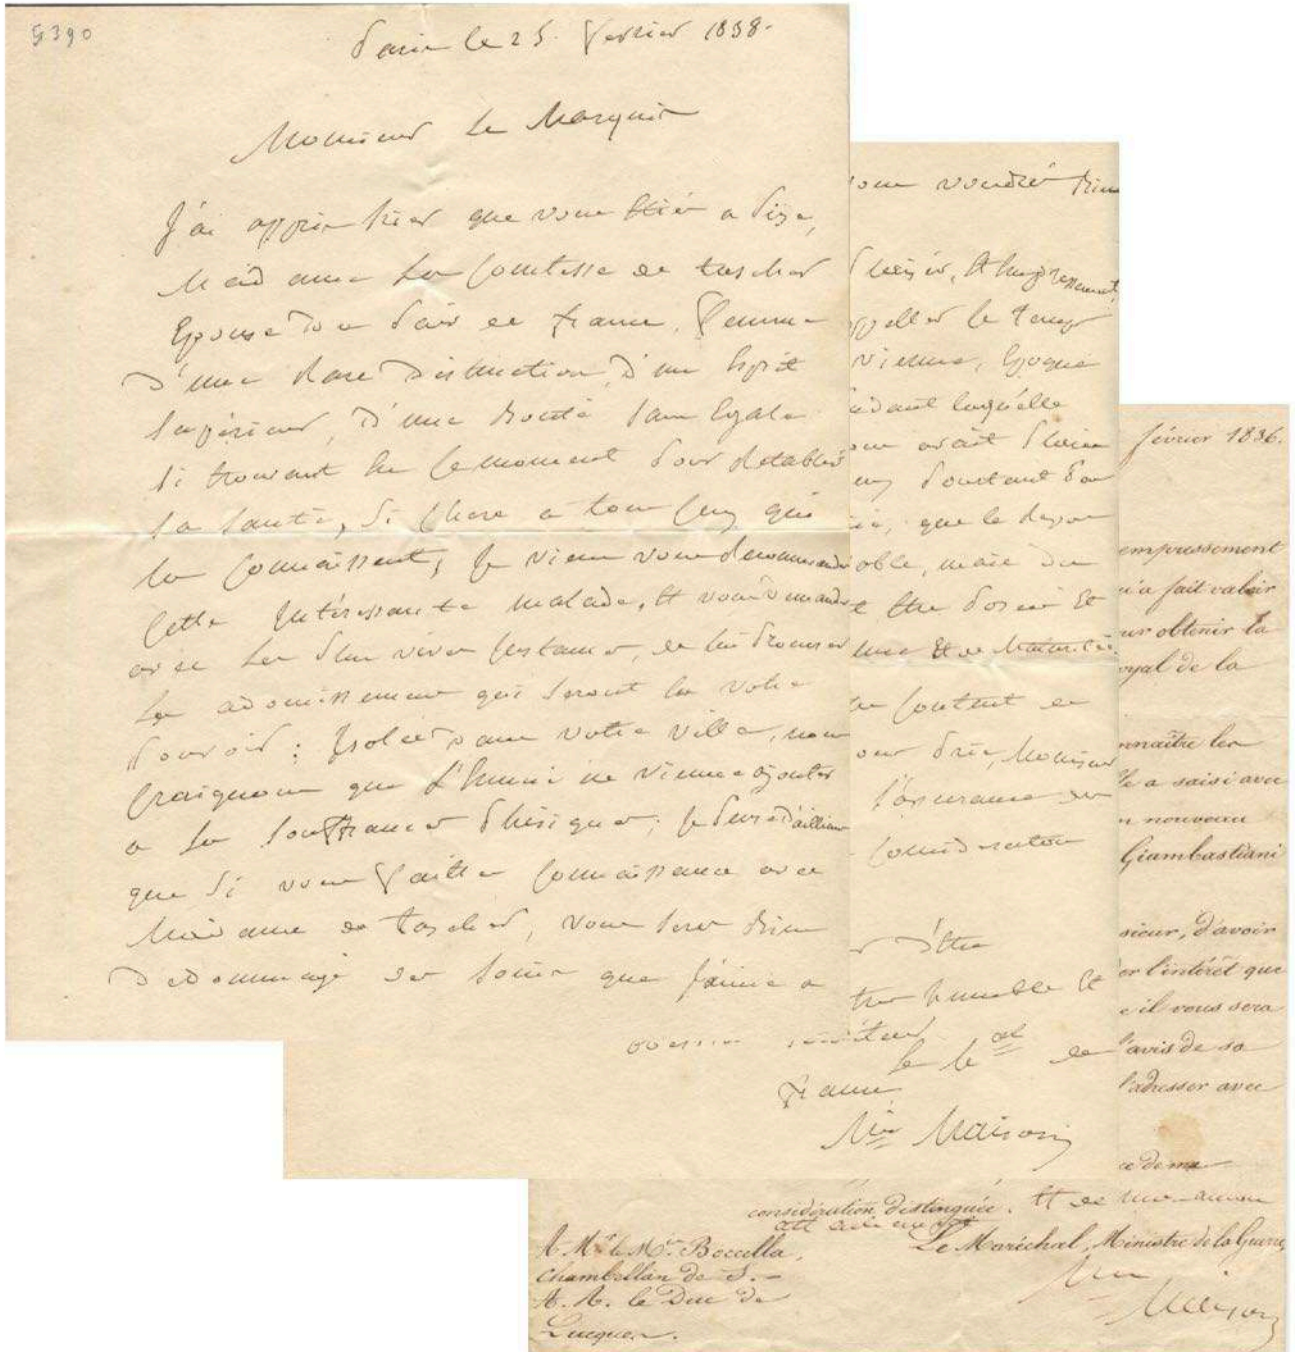 G390
Paris le 25. Fevrier 1838.
Monsieur Le Marquis
J'ai appris hier que vous étiés a Pise,
Madame La Comtesse de tascher
Epouse d'un Pair de france, femme
D'une Rare Distinction, d'un Esprit
Superieur, D'une Bonté sans Egale
Si trouvant En Ce moment Pour Retablir
sa santé, si Chere a tous Ceux qui
la Connaissent, Je viens vous recommander
Cette Intéressante malade, Et vous demander
avec Les Plus vives Instances, de lui Procurer
Les adoucissemens qui seront En votre
Pouvoir; Isolée dans votre ville, nous
Craignons que L'Ennui ne vienne ajouter
a Ses Souffrances Phisiques; Je Pense d'ailleurs
que Si vous faittes Connaissance avec
Madame de tascher, vous serez Bien
Dedommagé des soins que J'aime a
vous voudrés Bien
Plaisir, Et Empressement,
appeller le temps
vienne, Epoque
endant laquelle
avait
que le
oble, mais
Et
Et de
content de
Monsieur
l'assurance des
Consideration
D'être
tres humble Et
obéissant serviteur
Le Mal de
france
Mis Maison
février 1836.
empressement
u'a fait valoir
ur obtenir la
oyal de la
nnaître les
a saisi avec
nouveau
Giambastiani
sieur, d'avoir
l'intérêt que
il vous sera
l'avis de sa
l'adresser avec
de ma
considération distinguée. Et de mon ancien
attachement
Le Maréchal, Ministre de la Guerre,
Mis Maison
A Mr. le Mis. Boccella,
Chambellan de S.
A. R. le Duc de
Lucques.